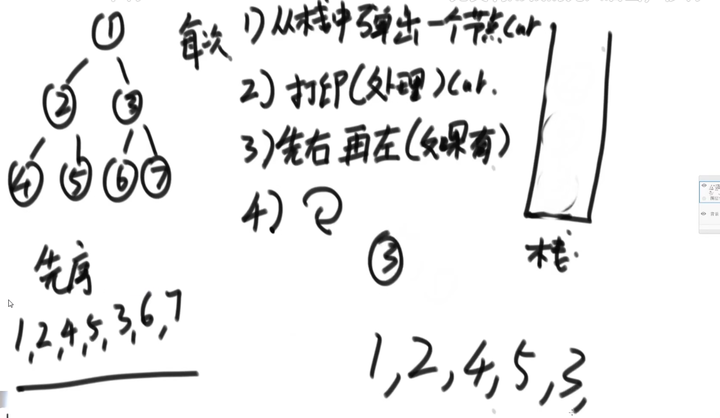 1
2 3
4 5 6 7
先序
1,2,4,5,3,6,7
每次 1)从栈中弹出一个节点cur
2)打印(处理)cur.
3)先右再左(如果有)
4)
栈.
3
1,2,4,5,3,